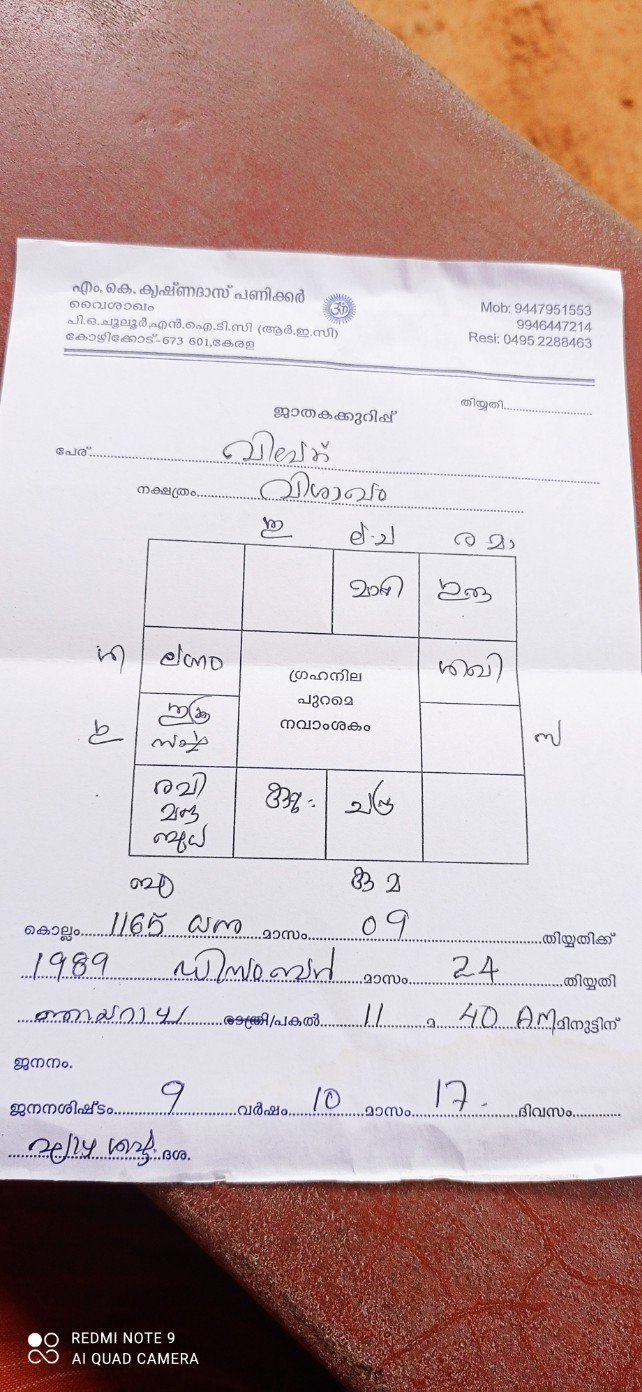 എം. കെ. കൃഷ്ണദാസ് പണിക്കർ
വൈശാഖം
പി.ഒ.ചൂലൂർ,എൻ.ഐ.ടി.സി (ആർ.ഇ.സി)
കോഴിക്കോട്-673 601,കേരള
Mob: 9447951553
9946447214
Resi: 0495 2288463
തിയ്യതി
ജാതകക്കുറിപ്പ്
പേര്
നക്ഷത്രം വിശാഖം
ര മാ
ലഗ്നം
ഗ്രഹനില
പുറമെ
നവാംശകം
ശിഖി
രവി
ബുധ
ചന്ദ്ര
കൊല്ലം 1165 ധനു മാസം 09 തിയ്യതിക്ക്
1989 ഡിസംബർ മാസം 24 തിയ്യതി
ഞായറാഴ്ച രാത്രി/പകൽ 11 മ 40 AM മിനുട്ടിന്
ജനനം.
ജനനശിഷ്ടം 9 വർഷം 10 മാസം 17 ദിവസം
വ്യാഴ ദശ.
REDMI NOTE 9
AI QUAD CAMERA